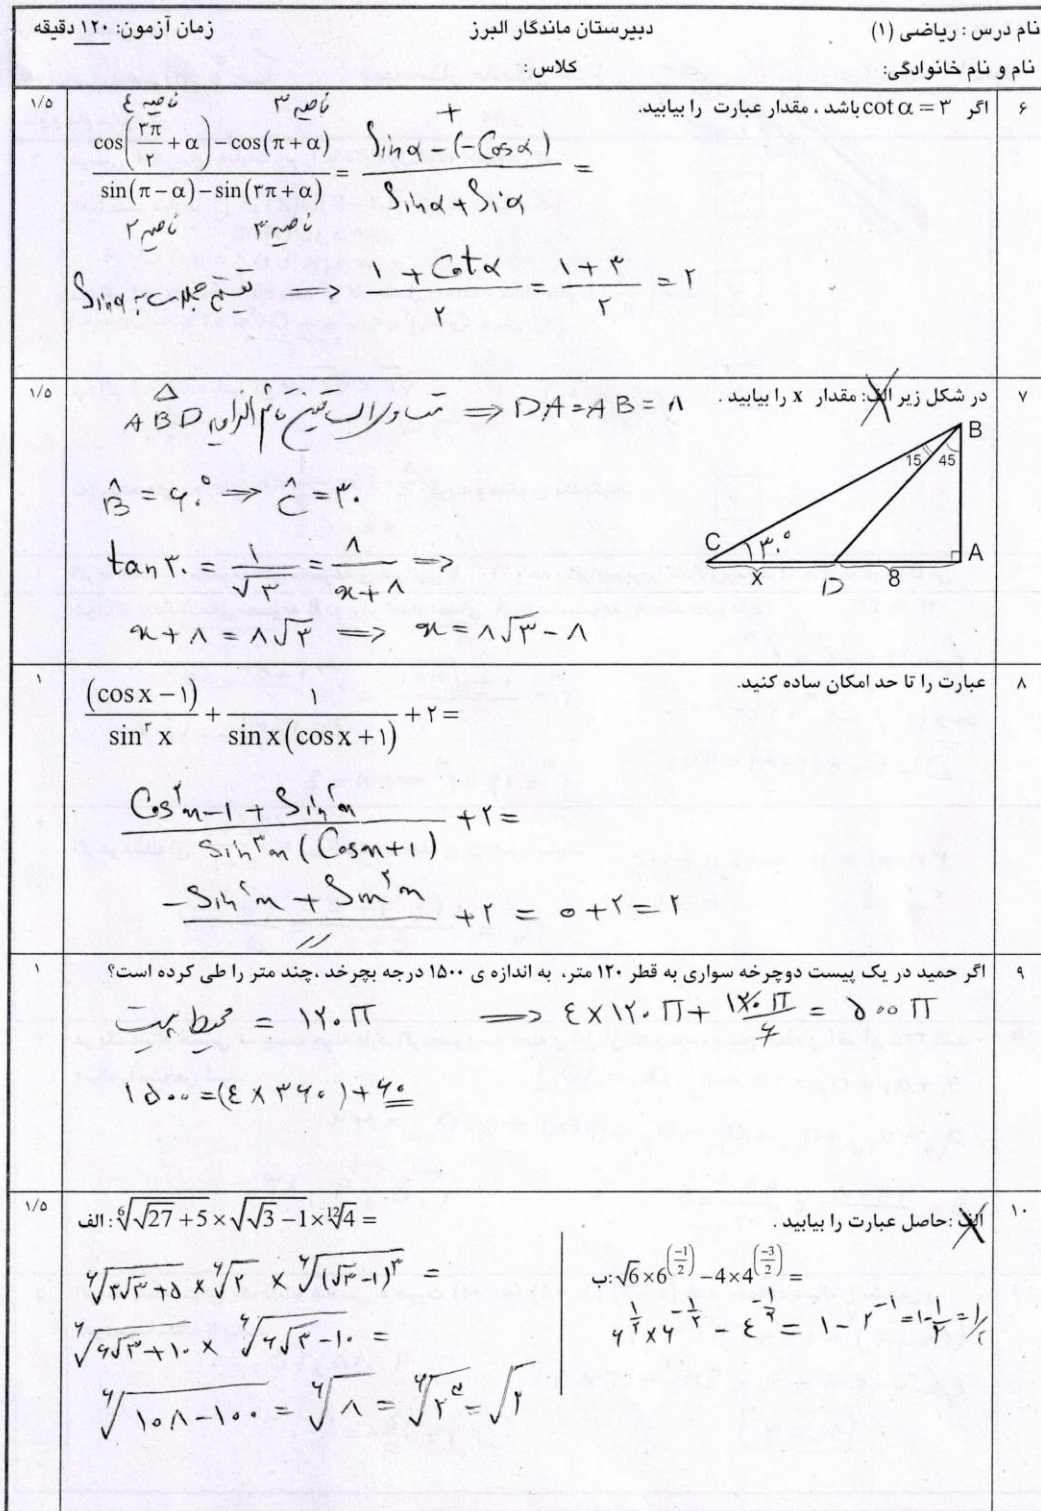 نام درس : ریاضی (۱) دبیرستان ماندگار البرز زمان آزمون: ۱۲۰ دقیقه
نام و نام خانوادگی: کلاس :
۶ اگر cot α = ۳ باشد ، مقدار عبارت را بیابید. ۱/۵
ناحیه ۴ ناحیه ۳ +
(cos(۳π/۲ + α) - cos(π + α)) / (sin(π - α) - sin(۳π + α)) = (Sinα - (-Cosα)) / (Sinα + Siα) =
ناحیه ۲ ناحیه ۳
تقسیم جملات بر Sinα ⟹ (۱ + Cotα) / ۲ = (۱ + ۳) / ۲ = ۲
۷ در شکل زیر الف: مقدار x را بیابید . ۱/۵
ABD △ ⟹ DA = AB = ۸
B
15 45
C ۳۰° A
x D 8
B̂ = ۶۰° ⟹ Ĉ = ۳۰
tan ۳۰ = ۱/√۳ = ۸/(x+۸) ⟹
x + ۸ = ۸√۳ ⟹ x = ۸√۳ - ۸
۸ عبارت را تا حد امکان ساده کنید. ۱
(cos x - ۱) / sin³ x + ۱ / (sin x (cos x + ۱)) + ۲ =
(Cos²x - ۱ + Sin²x) / (Sin³x (Cosx + ۱)) + ۲ =
(-Sin²x + Sin²x) / // + ۲ = ۰ + ۲ = ۲
۹ اگر حمید در یک پیست دوچرخه سواری به قطر ۱۲۰ متر، به اندازه ی ۱۵۰۰ درجه بچرخد ،چند متر را طی کرده است؟ ۱
محیط پیست = ۱۲۰π ⟹ ۴ × ۱۲۰π + ۱۲۰π/۶ = ۵۰۰π
۱۵۰۰ = (۴ × ۳۶۰) + ۶۰
۱۰ الف :حاصل عبارت را بیابید . ۱/۵
الف : ⁶√(√27 + 5) × √(√3 - 1) × ¹²√4 =
⁶√(۳√۳ + ۵) × ⁶√۲ × ⁶√((√۳ - ۱)³) =
⁶√(۶√۳ + ۱۰) × ⁶√(۶√۳ - ۱۰) =
⁶√(۱۰۸ - ۱۰۰) = ⁶√۸ = ⁶√۲³ = √۲
ب: √6 × 6^(-1/2) - 4 × 4^(-3/2) =
۶^(۱/۲) × ۶^(-۱/۲) - ۴^(-۱/۲) = ۱ - ۲^(-۱) = ۱ - ۱/۲ = ۱/۲